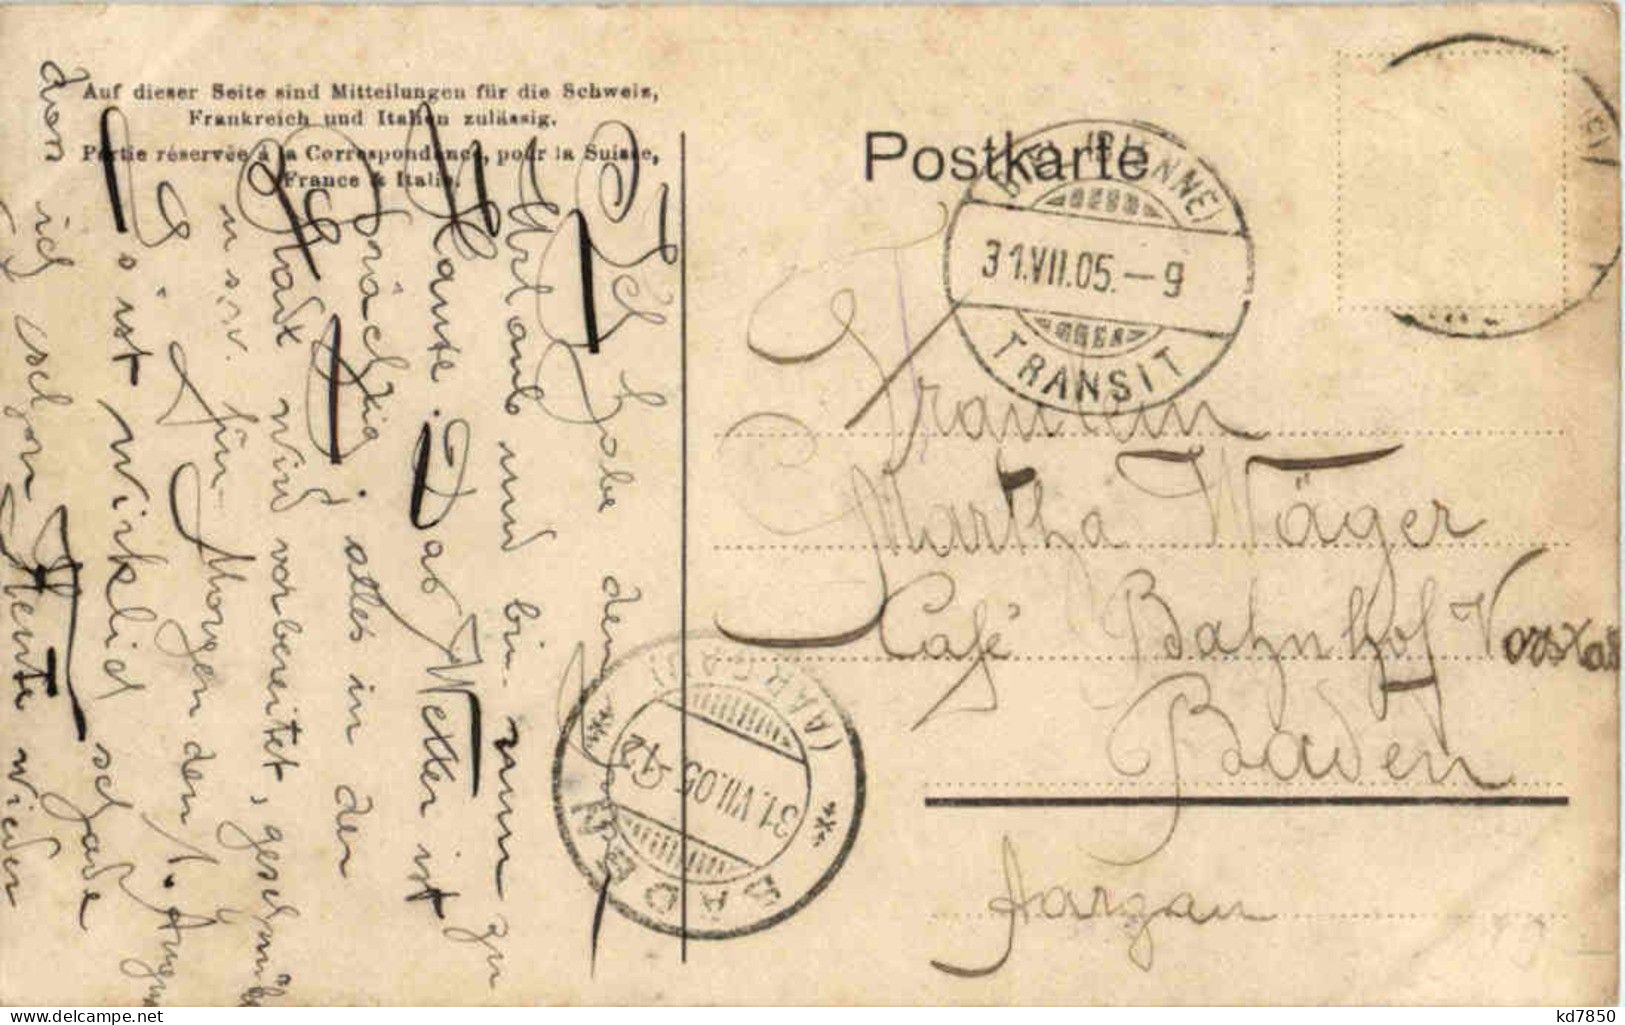 Auf dieser Seite sind Mitteilungen für die Schweiz,
Frankreich und Italien zulässig.
Partie réservée à la Correspondance, pour la Suisse,
France & Italie.
Postkarte
BIEL (BIENNE)
31.VII.05.-9
TRANSIT
Fräulein
Martha Wäger
Café Bahnhof Vorstadt
Baden
Aargau
BADEN
31.VII.05.-12
(AARGAU)
Ich habe den ganzen
Urlaub und bin nun zu
Hause. Das Wetter ist
prächtig, alles in der
Stadt wird vorbereitet, geschmü
u.s.w. für Morgen den 1. August
Es ist wirklich schade
dass ich schon Heute wieder
kd7850